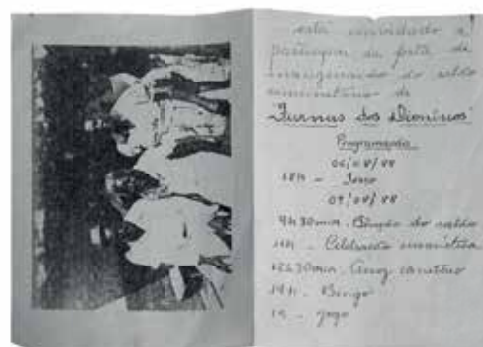 está convidado a
participar da festa de
inauguração do salão
comunitário de
"Furnas dos Dionísios"
Programação
06/08/88
18h - Terço
07/08/88
9h30min. Benção do salão
- Celebração eucarística
12h30min.
14h - Bingo
- Jogo